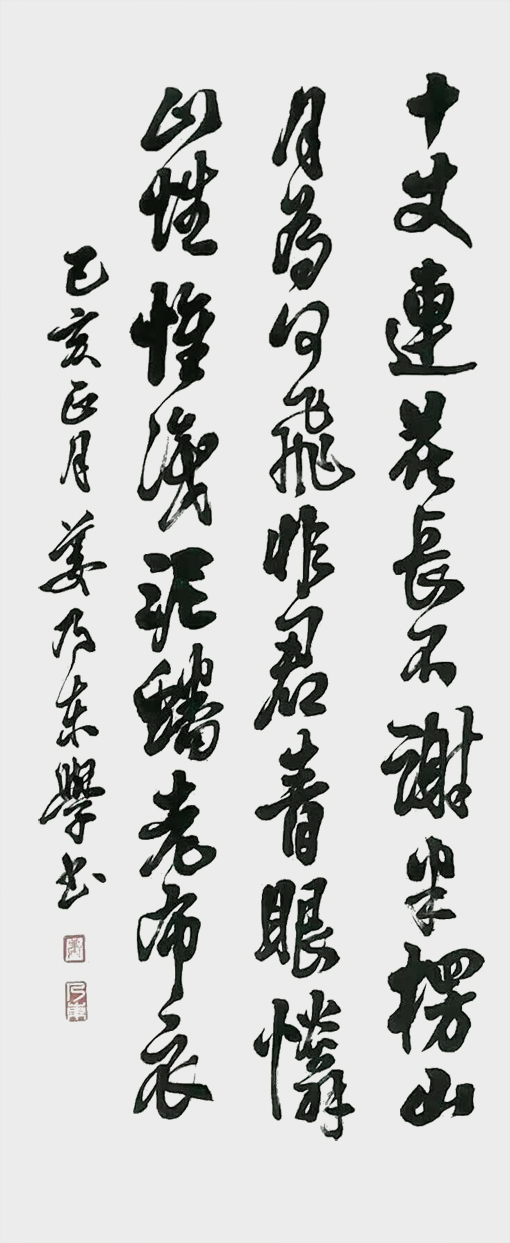 十丈連花長不謝半楞山
月為何飛非君青眼憐
山性惟識泥蟠老布衣
己亥正月姜乃東學書